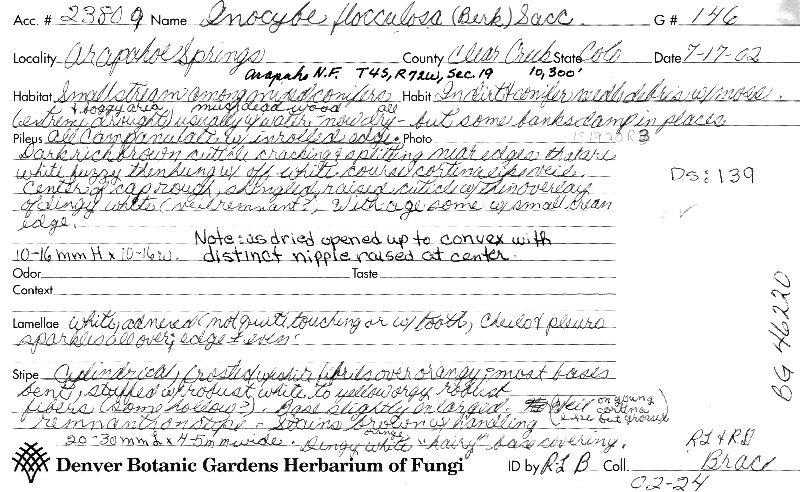 Acc. # 23809 Name Inocybe flocculosa (Berk) Sacc. G# 146
Locality Arapahoe Springs County Clear Creek State Colo Date 7-17-02
Arapaho N.F. T4S, R72W, Sec. 19 10,300'
Habitat Small stream among mixed conifers Habit In dirt & conifer needle debris w/ moss.
& boggy area, much dead wood all
(extreme drought) usually w/ water - now dry - but some banks damp in places
Pileus All Campanulate w/ inrolled edge. Photo
Dark rich brown cuticle cracking & splitting near edges that are
white fuzzy then hung w/ off white course cortina like veil.
Center of cap rough, shingled raised cuticle w/ thin overlay
of dingy white (veil remnant?). With age some w/ small clean
edge.
Ds: 139
Note: as dried opened up to convex with
10-16 mm H x 10-16 w. distinct nipple raised at center.
Odor Taste
Context
BG 46220
Lamellae White, adnexed (not quite touching or w/ tooth, cheilo & pleuro
sparkles all over; edge ± even.
Stipe Cylindrical, frosted w/ white fibrils over orangy - most bases
bent, stuffed w/ robust white to yellow orgy robust
fibers (some hollow?). Base slightly enlarged. Veil (on young cortina like but grosser)
remnant on stipe - Stains brown w/ handling
20-30 mm L x 4-5 mm wide. Dingy white "hairy" base covering.
Denver Botanic Gardens Herbarium of Fungi ID by RLB Coll. RL & RD
Brace
02-24